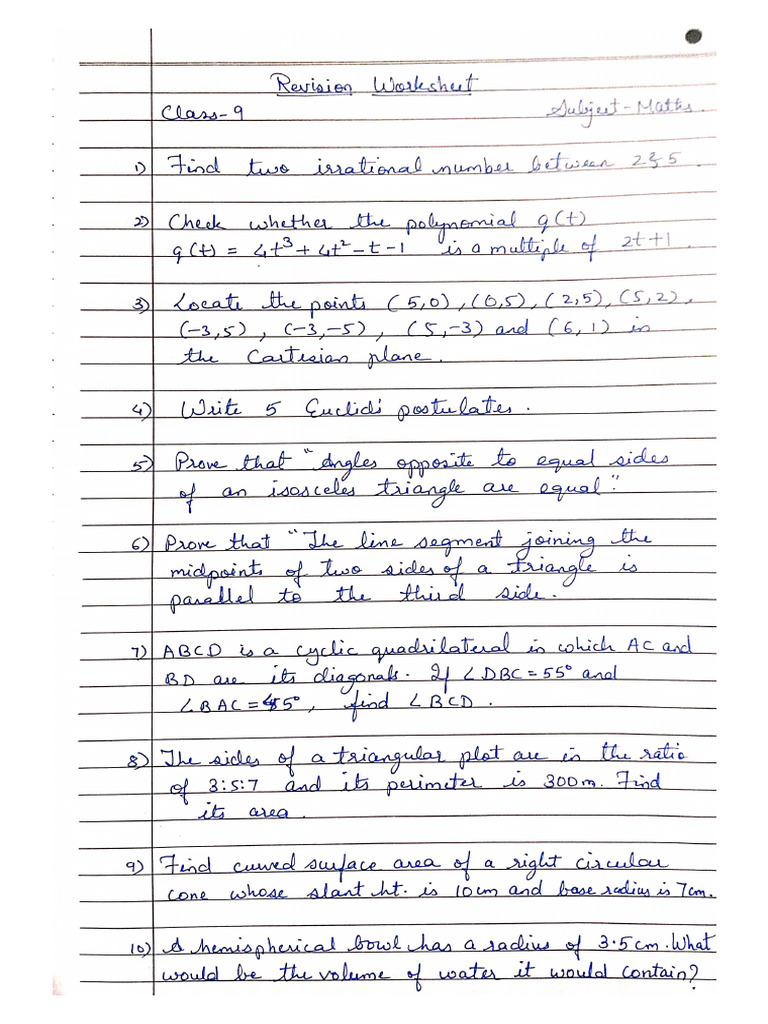 Revision Worksheet
Class-9 Subject-Maths.
1) Find two irrational number between 2 & 5.
2) Check whether the polynomial q(t)
q(t) = 4t³ + 4t² - t - 1 is a multiple of 2t+1.
3) Locate the points (5,0), (0,5), (2,5), (5,2),
(-3,5), (-3,-5), (5,-3) and (6,1) in
the Cartesian plane.
4) Write 5 Euclid's postulates.
5) Prove that "Angles opposite to equal sides
of an isosceles triangle are equal".
6) Prove that "The line segment joining the
midpoints of two sides of a triangle is
parallel to the third side.
7) ABCD is a cyclic quadrilateral in which AC and
BD are its diagonals. If ∠DBC = 55° and
∠BAC = 45°, find ∠BCD.
8) The sides of a triangular plot are in the ratio
of 3:5:7 and its perimeter is 300m. Find
its area.
9) Find curved surface area of a right circular
cone whose slant ht. is 10cm and base radius is 7cm.
10) A hemispherical bowl has a radius of 3.5cm. What
would be the volume of water it would contain?